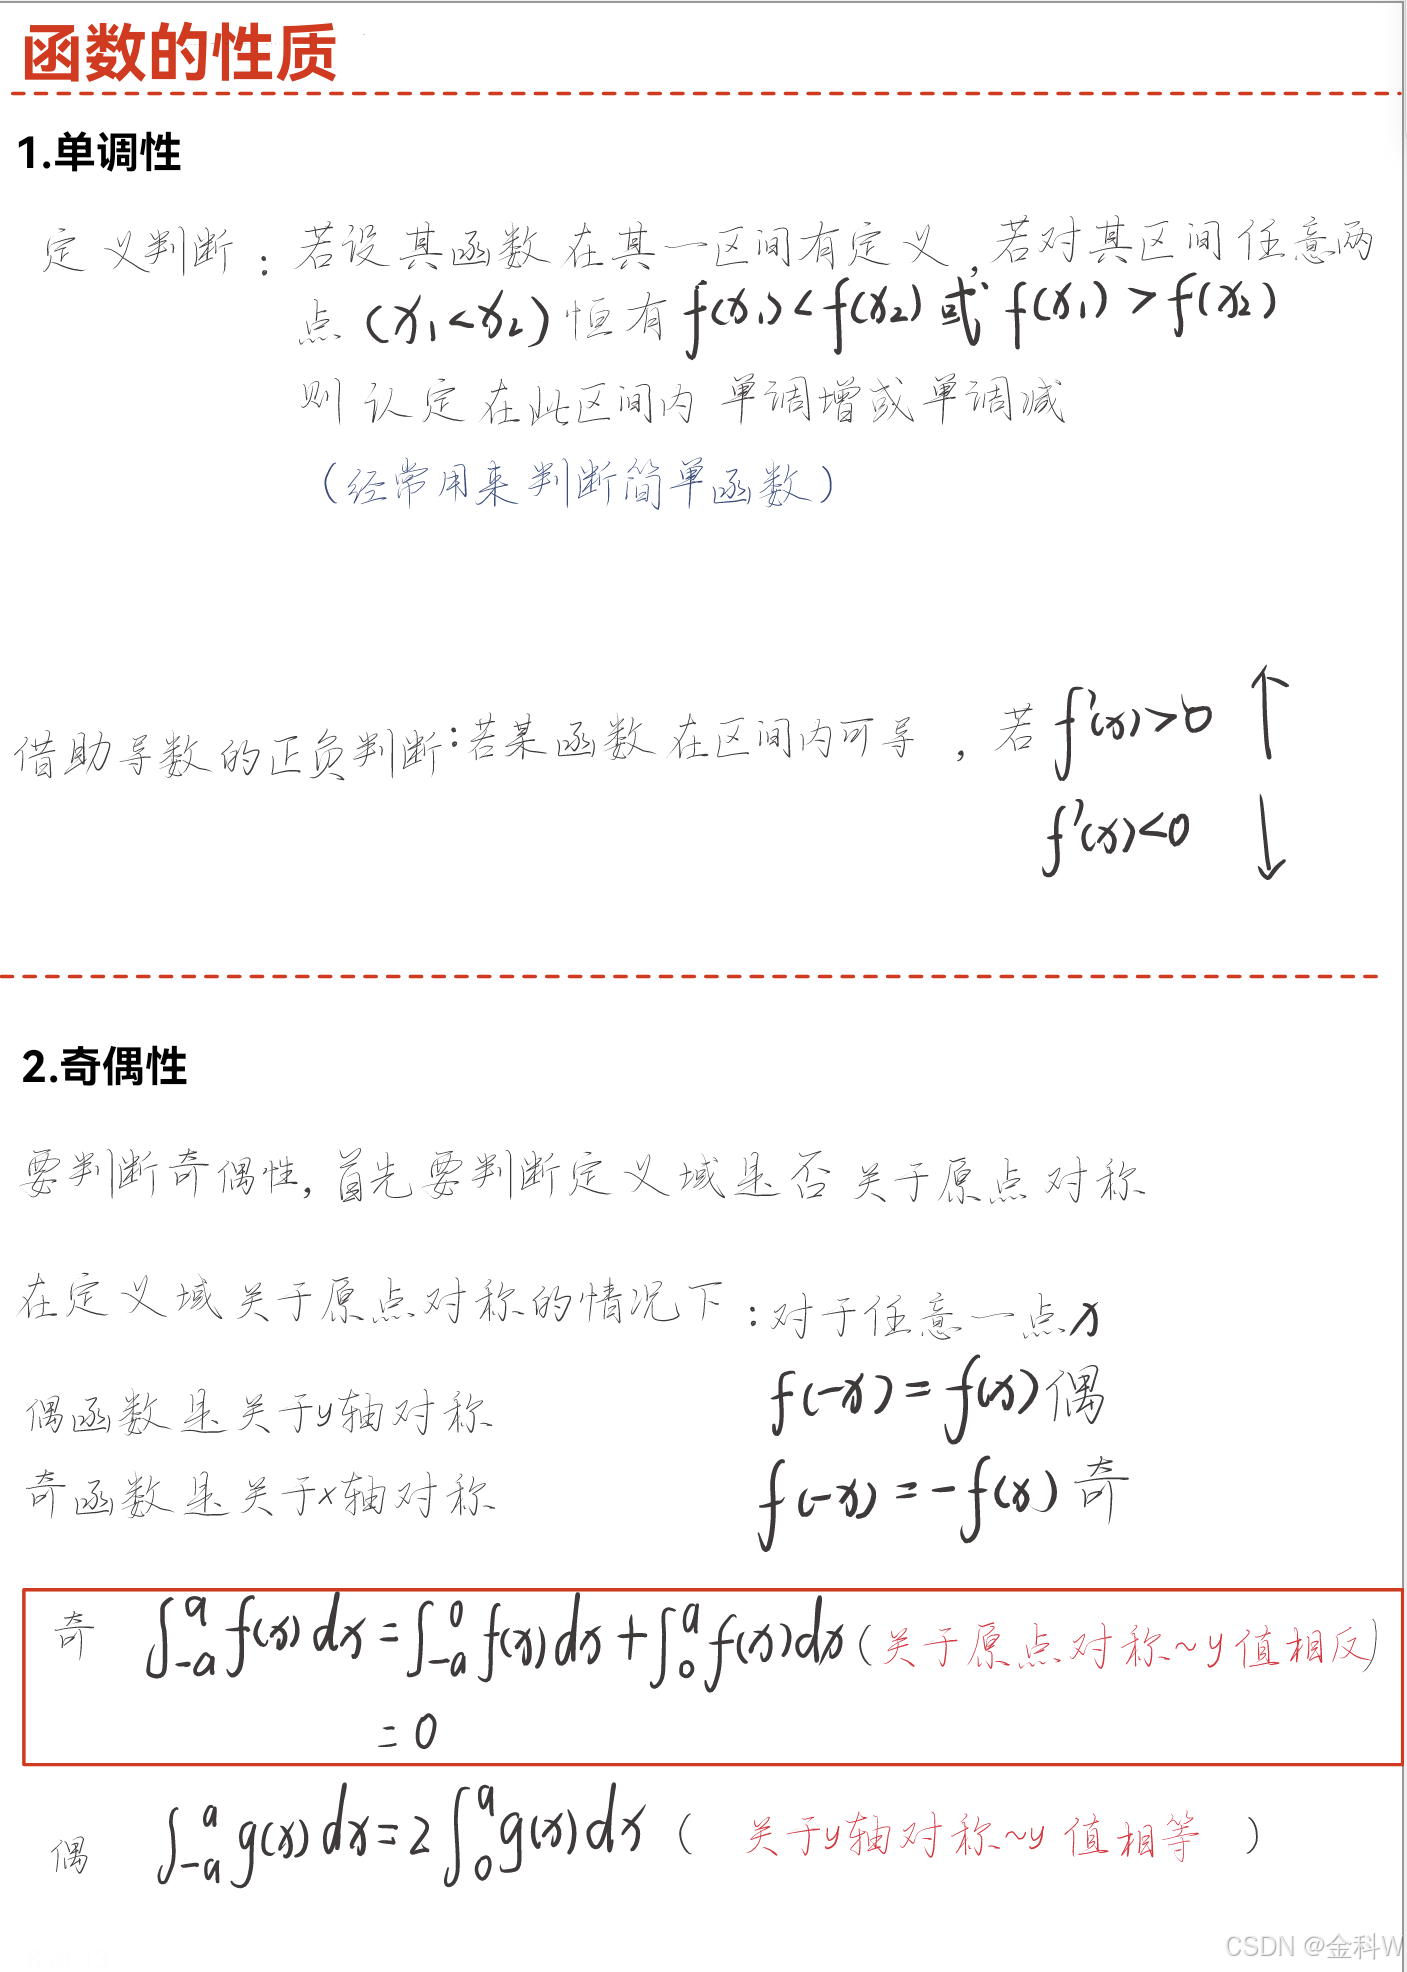 函数的性质
1.单调性
定义判断：若设某函数在某一区间有定义，若对某区间任意两
点 (x₁<x₂) 恒有 f(x₁)<f(x₂) 或 f(x₁)>f(x₂)
则认定在此区间内 单调增或单调减
（经常用来判断简单函数）
借助导数的正负判断：若某函数在区间内可导，若 f'(x)>0 ↑
f'(x)<0 ↓
2.奇偶性
要判断奇偶性，首先要判断定义域是否关于原点对称
在定义域关于原点对称的情况下：对于任意一点x
f(-x)=f(x) 偶
偶函数是关于y轴对称
f(-x)=-f(x) 奇
奇函数是关于x轴对称
奇 ∫₋ₐᵃ f(x)dx=∫₋ₐ⁰ f(x)dx+∫₀ᵃ f(x)dx（关于原点对称~y值相反）
=0
偶 ∫₋ₐᵃ g(x)dx=2∫₀ᵃ g(x)dx（ 关于y轴对称~y值相等 ）
CSDN @金科W